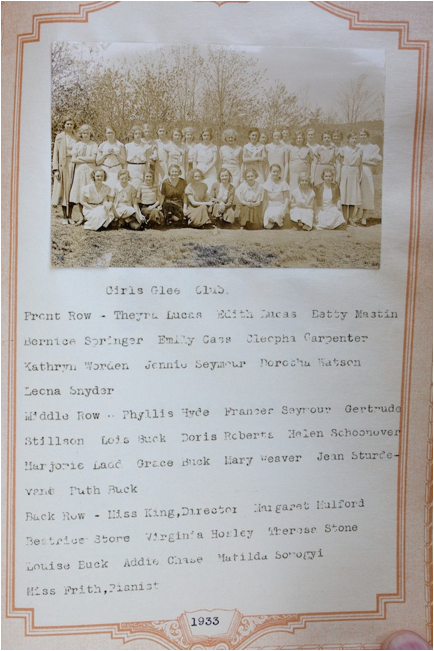 Girls Glee Club.
Front Row - Theyra Lucas Edith Lucas Betty Mastin
Bernice Springer Emily Cass Cleopha Carpenter
Kathryn Worden Jennie Seymour Dorotha Watson
Leona Snyder
Middle Row - Phyllis Hyde Frances Seymour Gertrude
Stillson Lois Buck Doris Roberts Helen Schoonover
Marjorie Ladd Grace Buck Mary Weaver Jean Sturde-
vant Ruth Buck
Back Row - Miss King,Director Margaret Mulford
Beatrice Stone Virginia Hosley Therese Stone
Louise Buck Addie Chase Matilda Somogyi
Miss Frith,Pianist
1933